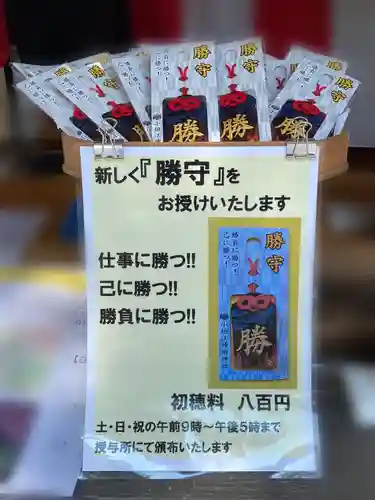 勝守
勝守
勝守
勝守
勝
勝
勝
新しく『勝守』を
お授けいたします
仕事に勝つ!!
己に勝つ!!
勝負に勝つ!!
勝守
勝負に勝つ!
己に勝つ!
勝
初穂料 八百円
土・日・祝の午前9時～午後5時まで
授与所にて頒布いたします